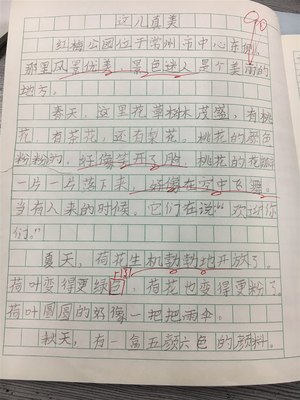 这儿真美
90
红梅公园位于常州市中心东侧，
那里风景优美，景色迷人是个美丽的
地方。
春天，这里花草树木茂盛，有桃
花，有茶花，还有梨花。桃花的颜色
粉粉的，好像笑开了脸，桃花的花瓣
一片一片落下来，好像在空中飞舞。
当有人来的时候，它们在说“欢迎你
们。”
夏天，荷花生机勃勃地开放了。
荷叶变得更绿，荷花也变得更粉了。
荷叶圆圆的好像一把把雨伞。
秋天，有一盒五颜六色的颜料。